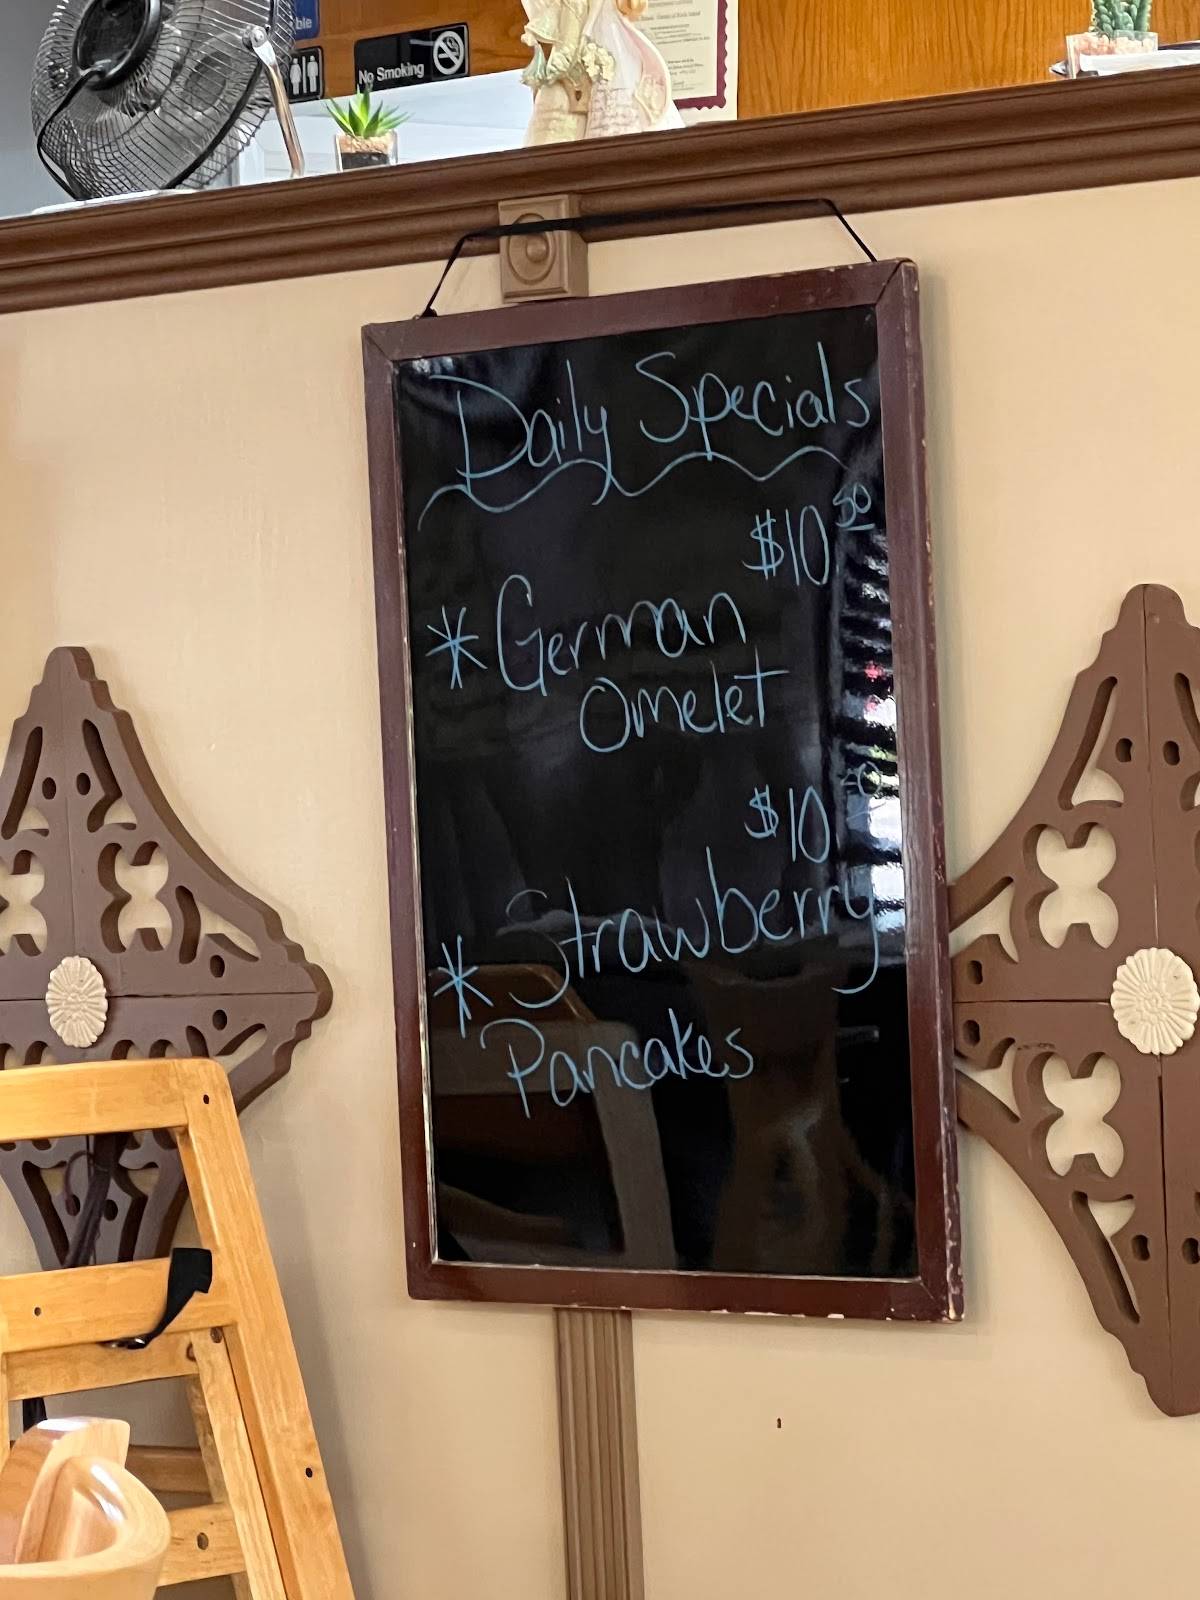 No Smoking
Daily Specials
$10 50
* German
Omelet
$10
* Strawberry
Pancakes